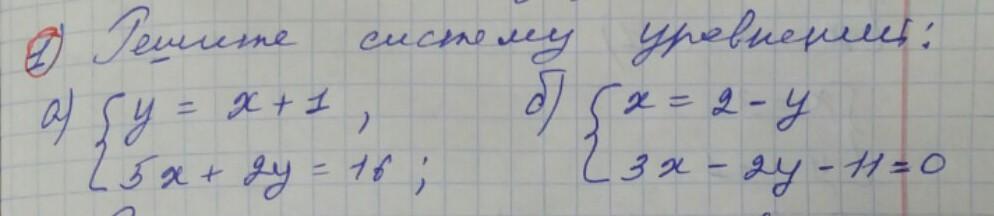 1) Решите систему уравнений:
а) { y = x + 1 , б) { x = 2 - y
5x + 2y = 16 ; 3x - 2y - 11 = 0